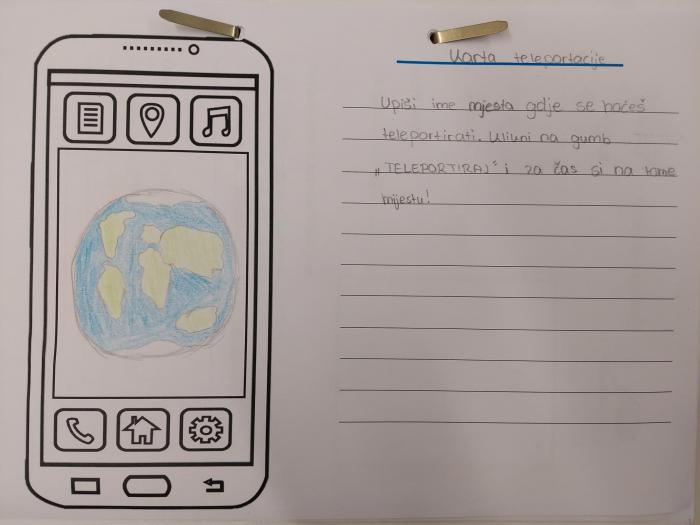 Karta teleportacije
Upiši ime mjesta gdje se hoćeš
teleportirati. Klikni na gumb
„TELEPORTIRAJ" i za čas si na tome
mijestu!